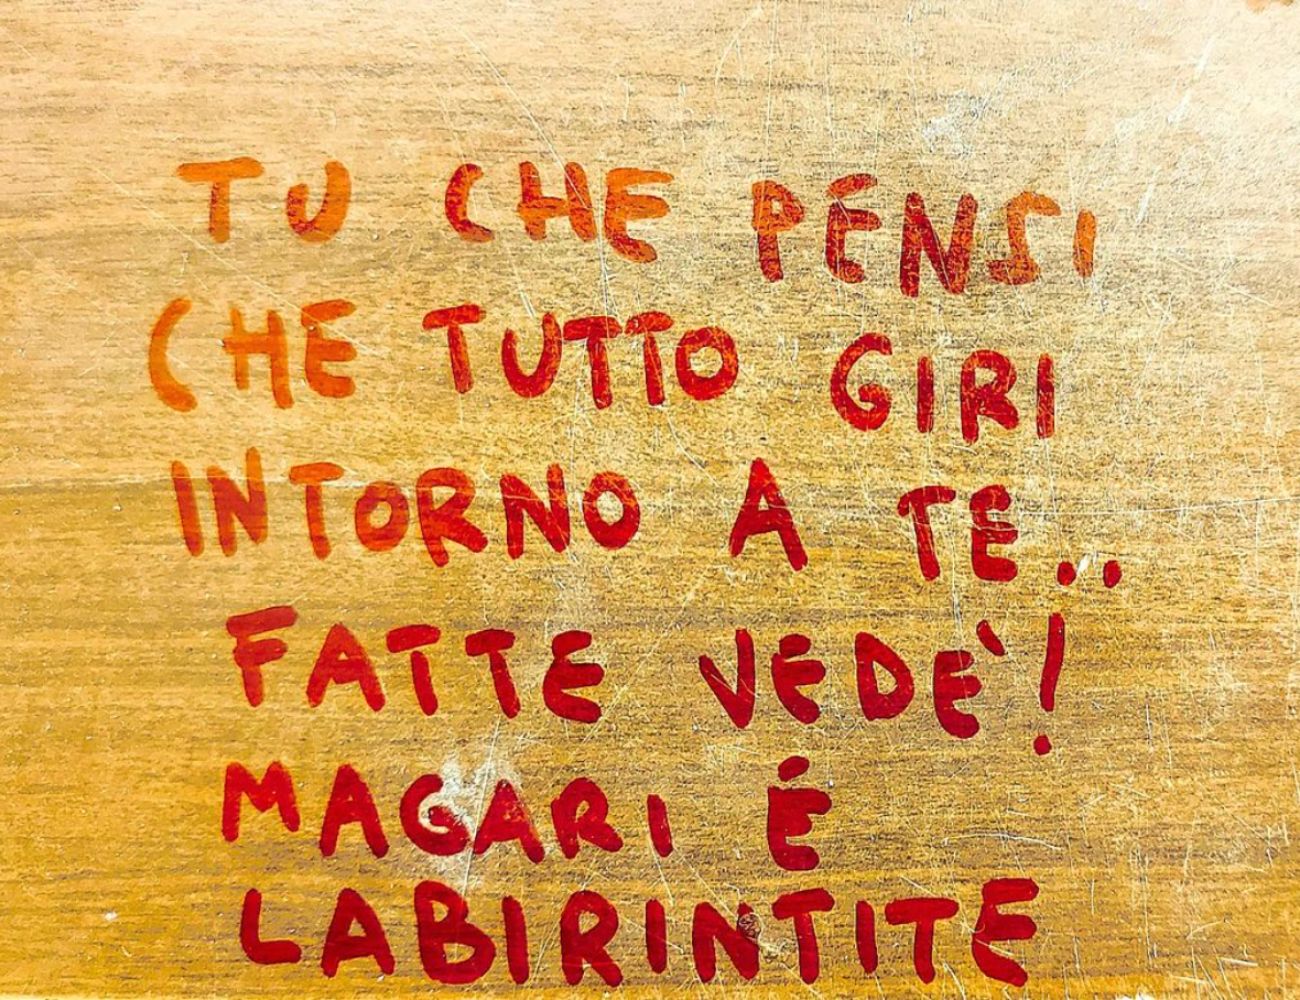 TU CHE PENSI
CHE TUTTO GIRI
INTORNO A TE..
FATTE VEDE'!
MAGARI É
LABIRINTITE